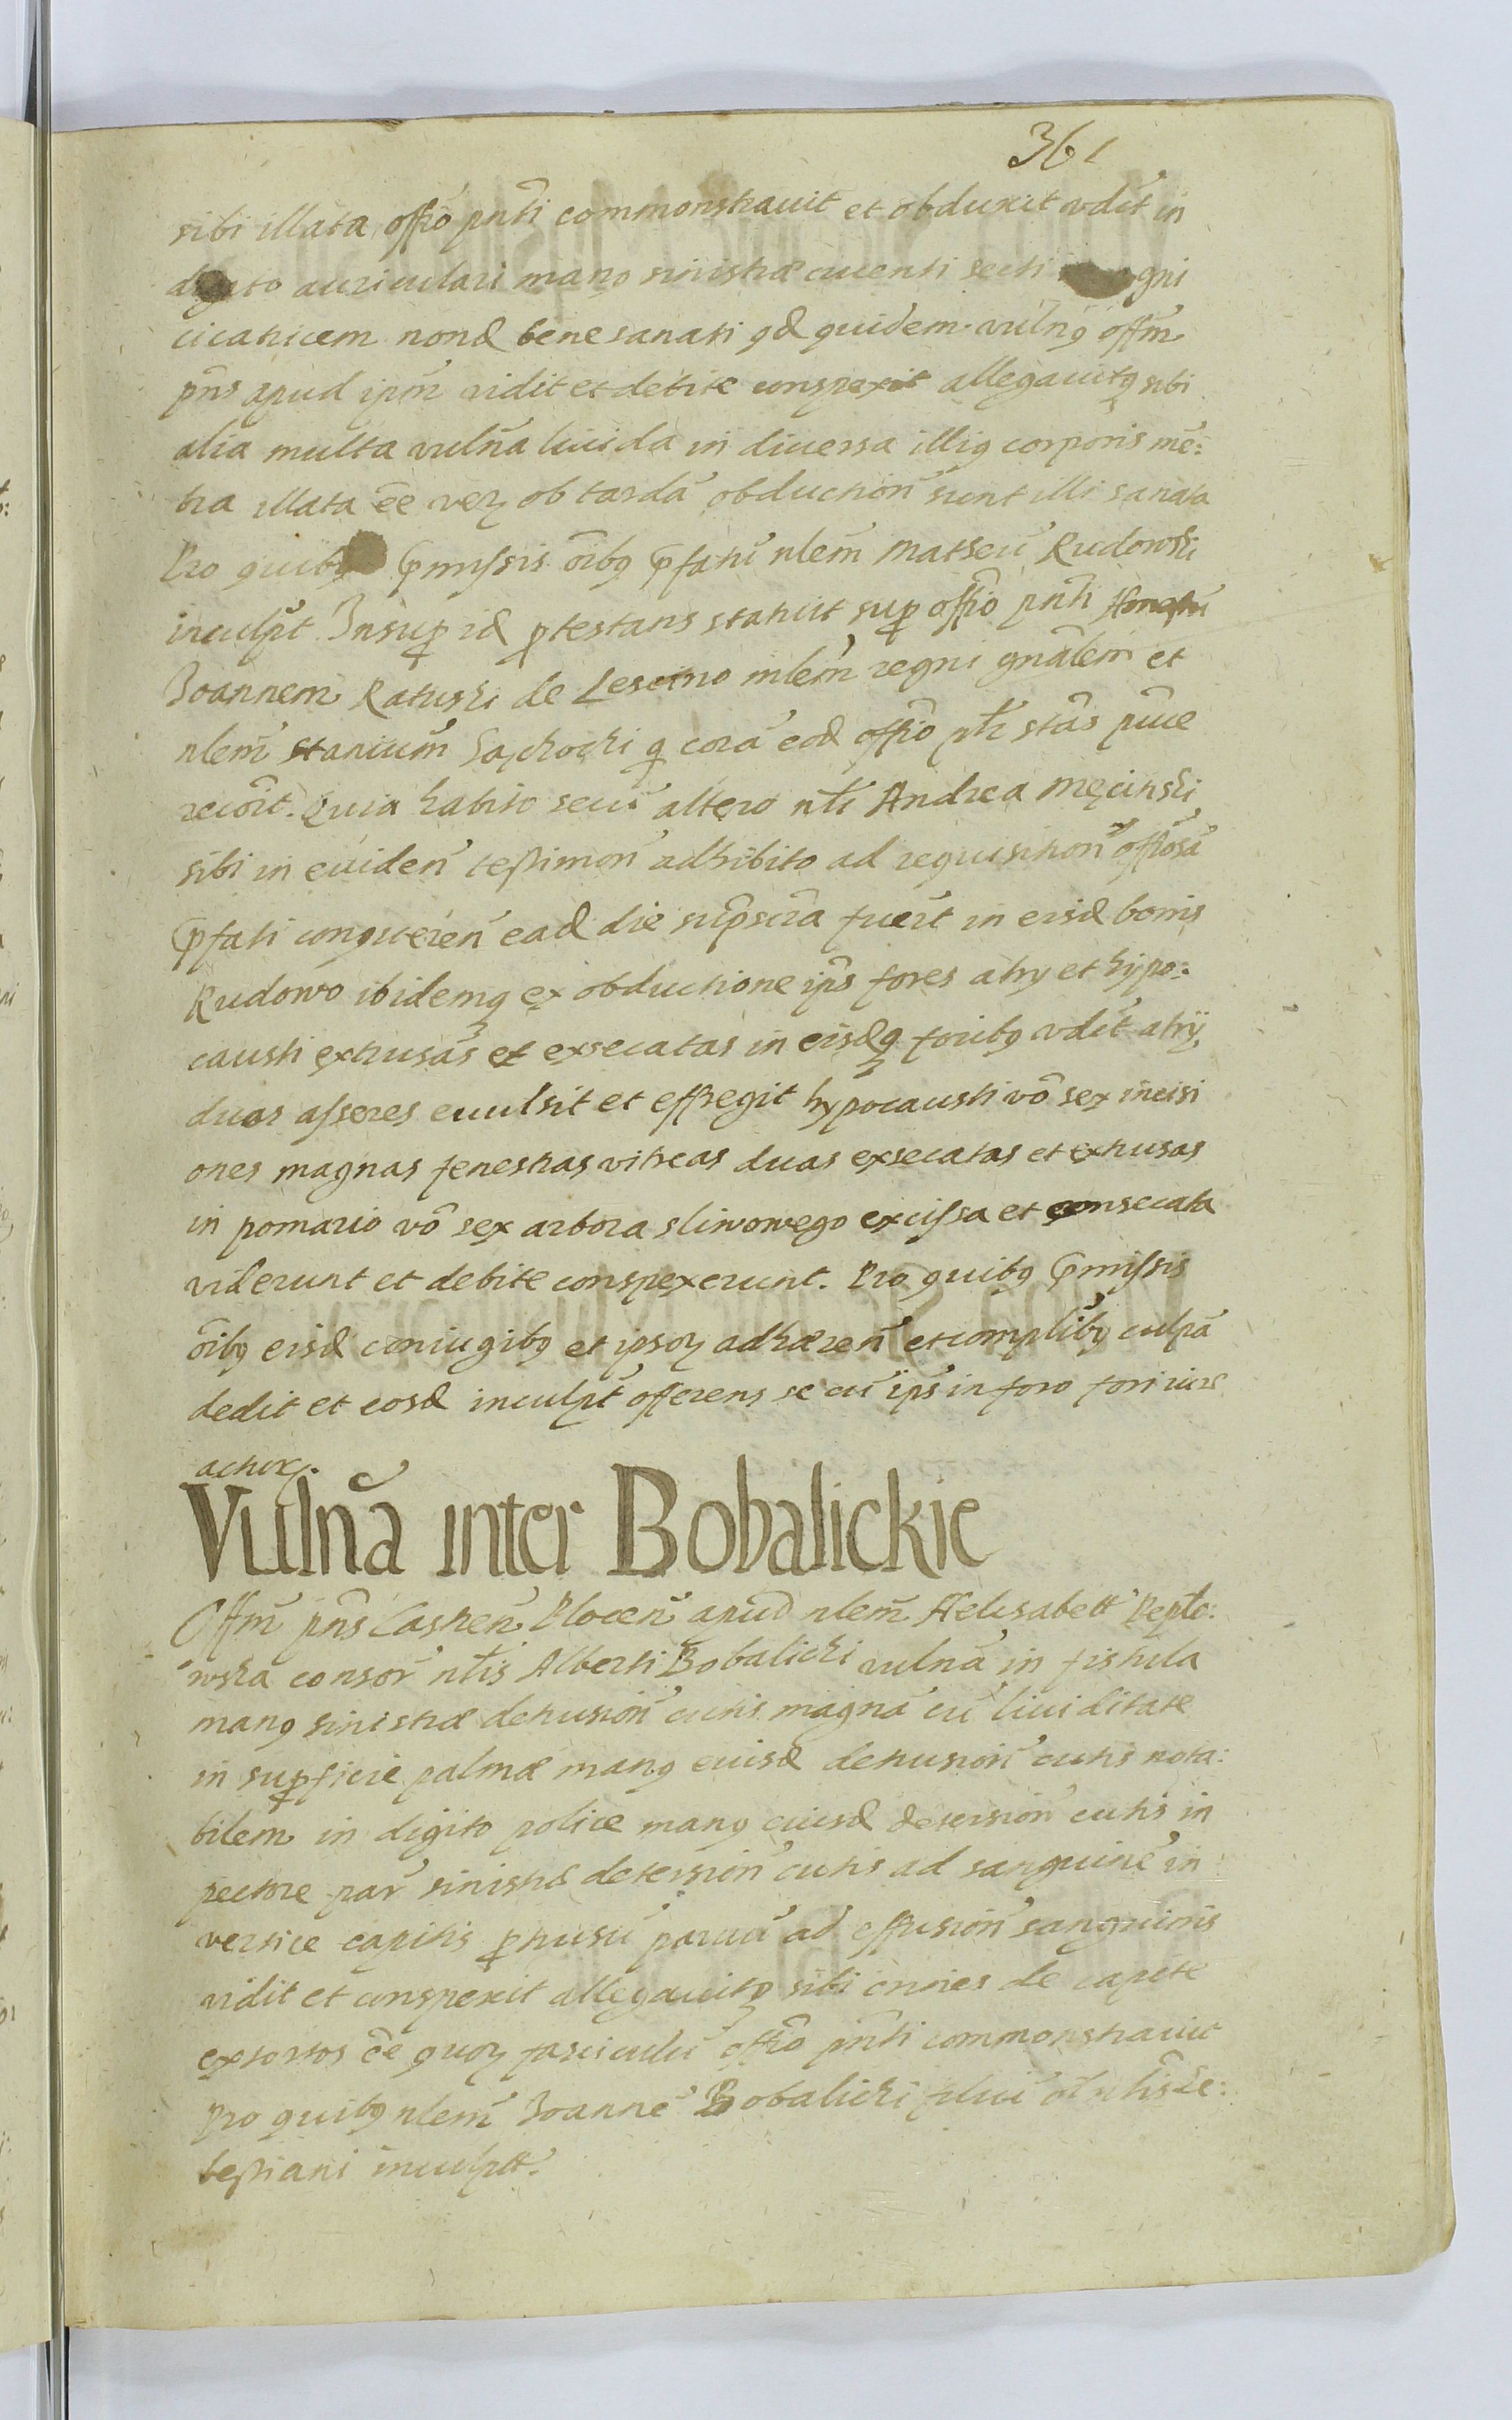 361
sibi illata offō pnti commonstrauit et obduxit vdēt in
digito auriculari manꝰ sinistræ cruenti secti gni
cicatricem nond bene sanati qd quidem vulnꝰ offm̄
pn̄s apud ipm̄ vidit et debite conspexit allegauitqꝫ sibi
alia multa vuln̄a liuida in diuersa illiꝰ corporis mē:
bra illata eē̄ veꝝ ob tardā obduction̄ sunt illi sanata
Pro quibꝰ p̄missis oībꝰ p̄fatū nlem̄ Matheū Rudowski
inculpt̄. Insuꝑ id ꝓtestans statuit suꝑ offō pn̄ti
Joannem Ratuski de Lescino mlem̄ regni gn̄alem et
nlem̄ Stanium̄ q corā eod offō stās
recōīt. Quia habito secū altero nl̄i Andrea Męcinski
sibi in euiden̄ testimon̄ adhibito ad requisition̄ offōsā
p̄fati conqueren̄ ead die sup̄scrā fuēit in eisd bonis
Rudowo ibidemqꝫ ex obductione ip̄s fores atrij et hypo:
causti extrusas et exsecatas in eisdqꝫ foribꝰ vdēt atrij
duos asseres euulsit et effregit hypocausti vō sex incisi
ones magnas fenestras vitreas duas exsecatas et extrusas
in pomario vō sex arbora sliwowego excissa et consecata
viderunt et debite conspexerunt. Pro quibꝰ p̄missis
oībꝰ eisd coniugibꝰ et ipsoꝝ adhæren̄ et complibꝰ culpā
dedit et eosd inculpt̄ offerens se cū ip̄s in foro fori iure
acturꝫ.
Vuln̄a inter Bobalickie
Offm̄ pn̄s Castren̄ Plocen̄ apud nlem̄ Helisabett Peplo:
wska consor̄ nl̄is Alberti Bobalicki vulnā in fistula
manꝰ sinistræ detrusion̄ cutis magnā cū liuiditate
in suꝑficie palmæ manꝰ euisd detrusion̄ cutis nota:
bilem in digito police manꝰ euisd detersion̄ cutis in
pectore par̄ sinistræ detersion̄ cutis ad sanguinē in
vertice capitis ꝑtusū paruū ad effusion̄ sanguinis
vidit et conspexit allegauitqꝫ sibi crines de capite
extortos eē̄ quoꝝ fasciculū offō pn̄ti commonstrauit
Pro quibꝰ nlem̄ Joannē Bobalicki filiū ol nl̄is Se:
bestiani inculpt̄.